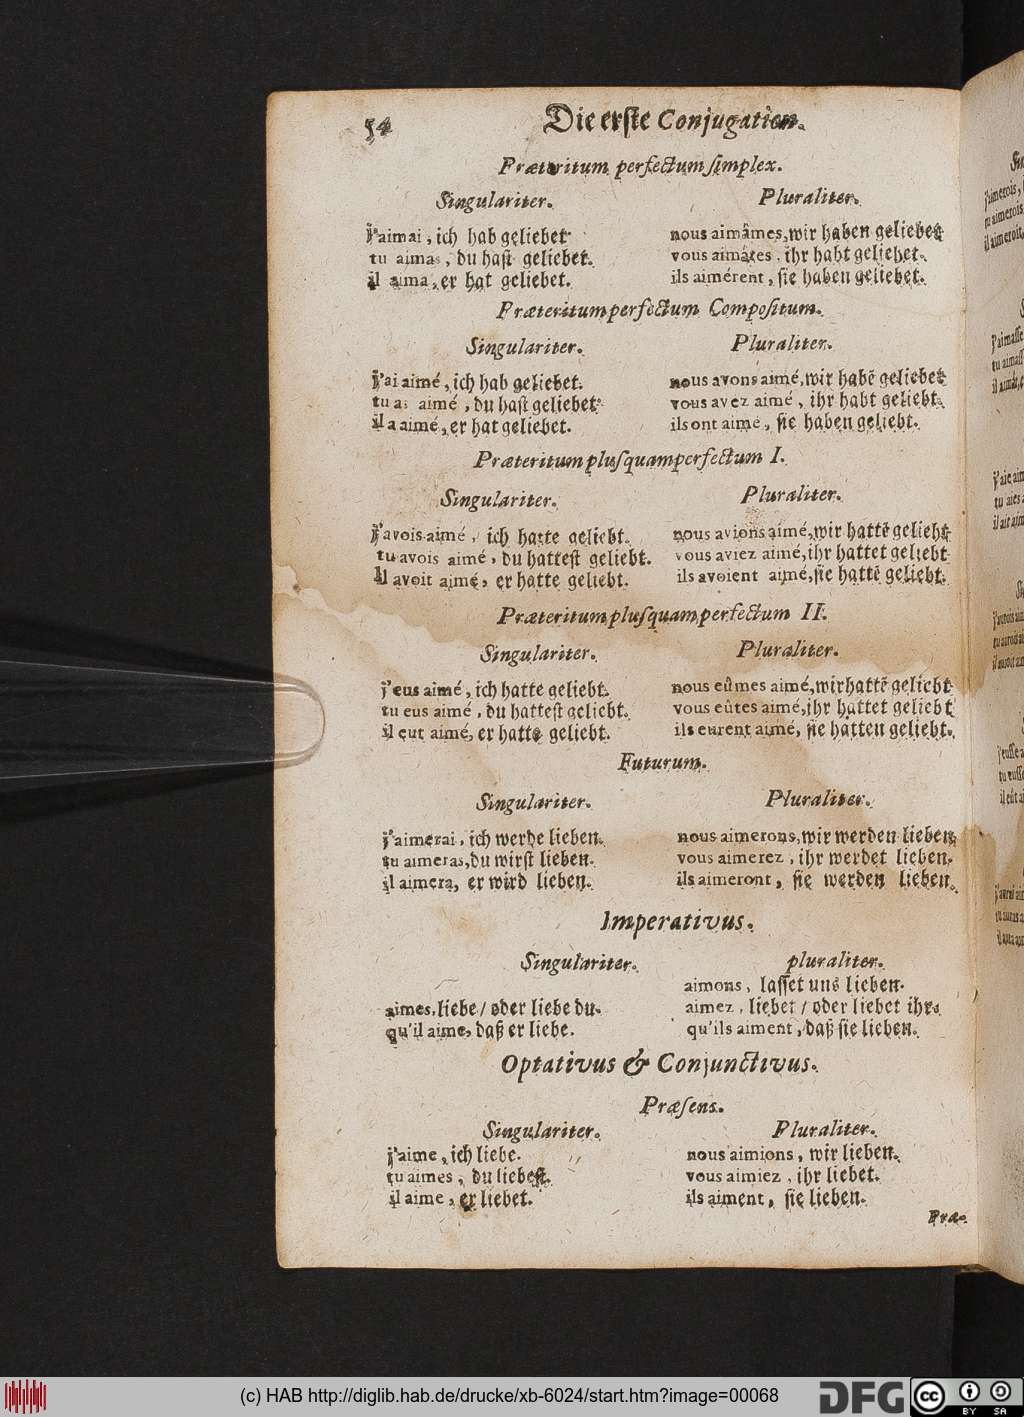 54 Die erste Conjugation.
Præteritum perfectum simplex.
Singulariter. Pluraliter.
j'aimai, ich hab geliebet nous aimâmes, wir haben geliebet
tu aimas, du hast geliebet. vous aimâtes, ihr habt geliebet.
il aima, er hat geliebet. ils aimérent, sie haben geliebet.
Præteritum perfectum Compositum.
Singulariter. Pluraliter.
j'ai aimé, ich hab geliebet. nous avons aimé, wir habẽ geliebet
tu as aimé, du hast geliebet. vous avez aimé, ihr habt geliebt.
il a aimé, er hat geliebet. ils ont aimé, sie haben geliebt.
Præteritum plusquamperfectum I.
Singulariter. Pluraliter.
j'avois aimé, ich hatte geliebt. nous avions aimé, wir hattẽ geliebt
tu avois aimé, du hattest geliebt. vous aviez aimé, ihr hattet geliebt
il avoit aimé, er hatte geliebt. ils avoient aimé, sie hattẽ geliebt.
Præteritum plusquam perfectum II.
Singulariter. Pluraliter.
j'eus aimé, ich hatte geliebt. nous eûmes aimé, wir hattẽ geliebt
tu eus aimé, du hattest geliebt. vous eûtes aimé, ihr hattet geliebt
il eut aimé, er hatte geliebt. ils eurent aimé, sie hatten geliebt.
Futurum.
Singulariter. Pluraliter.
j'aimerai, ich werde lieben. nous aimerons, wir werden lieben,
tu aimeras, du wirst lieben. vous aimerez, ihr werdet lieben,
il aimera, er wird lieben. ils aimeront, sie werden lieben.
Imperativus.
Singulariter. pluraliter.
aimons, lasset uns lieben.
aimes, liebe / oder liebe du. aimez, liebet / oder liebet ihr.
qu'il aime, daß er liebe. qu'ils aiment, daß sie lieben.
Optativus & Conjunctivus.
Præsens.
Singulariter. Pluraliter.
j'aime, ich liebe. nous aimions, wir lieben.
tu aimes, du liebest. vous aimiez, ihr liebet.
il aime, er liebet. ils aiment, sie lieben.
Præ-
(c) HAB http://diglib.hab.de/drucke/xb-6024/start.htm?image=00068
DFG
cc BY SA